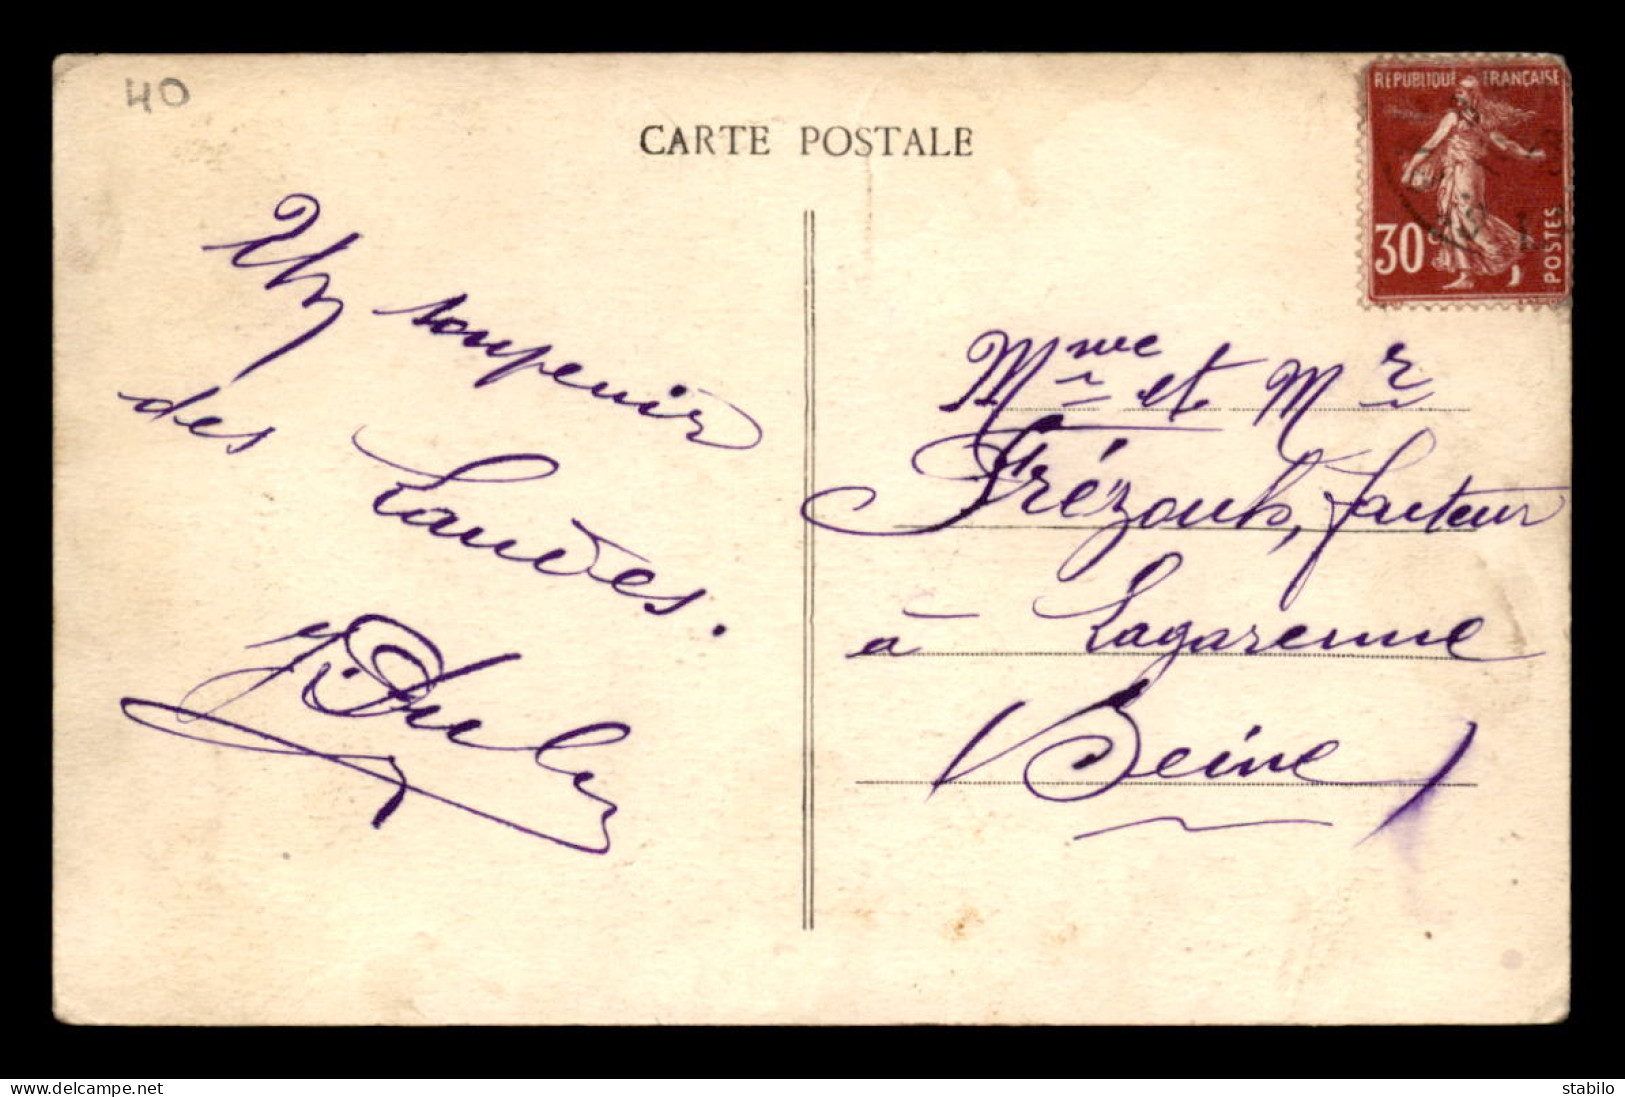 40
CARTE POSTALE
REPUBLIQUE FRANÇAISE
30c
POSTES
Un souvenir
des Landes.
Mme et Mr
Frézouls, facteur
à Lagarenne
(Seine)
www.delcampe.net
stabilo